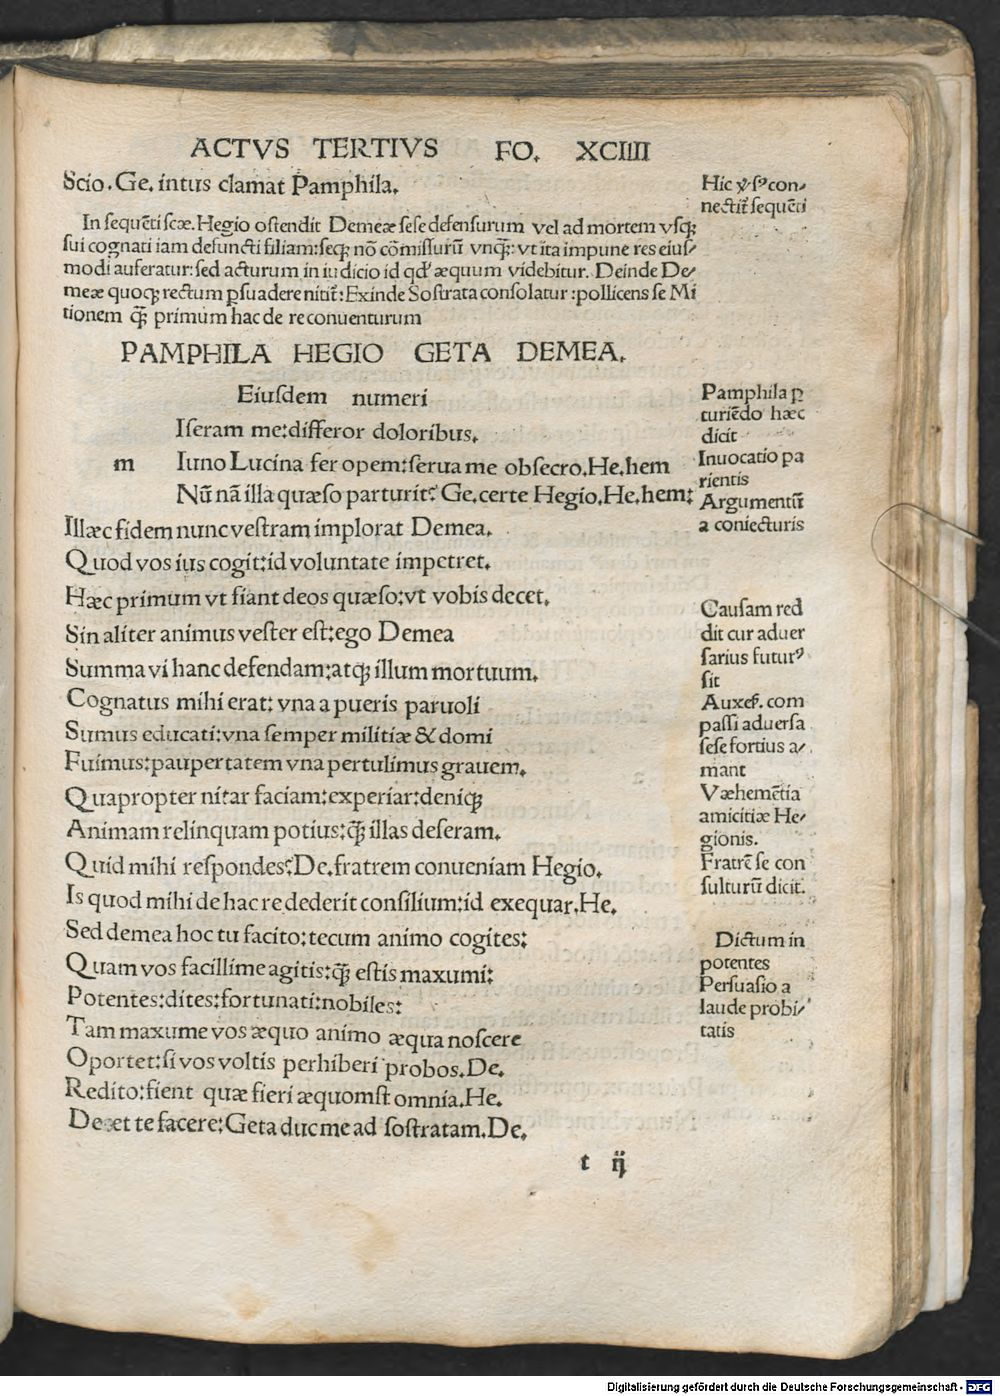 ACTVS TERTIVS FO. XCIIII
Scio. Ge. intus clamat Pamphila.
In sequēti scæ. Hegio ostendit Demeæ sese defensurum vel ad mortem vsqꝫ
sui cognati iam defuncti filiam: seqꝫ nō cōmissurū vnq̃ꝫ: vt ita impune res eius⸗
modi auferatur: sed acturum in iudicio id qd' æquum videbitur. Deinde De⸗
meæ quoqꝫ rectum ꝑsuadere nitit̄: Exinde Sostrata consolatur: pollicens se Mi
tionem q̃ꝫ primum hac de re conuenturum
PAMPHILA HEGIO GETA DEMEA.
Eiusdem numeri
Iseram me: differor doloribus.
m Iuno Lucina fer opem: serua me obsecro. He. hem
Nū nā illa quæso parturit? Ge. certe Hegio. He. hem:
Illæc fidem nunc vestram implorat Demea.
Quod vos ius cogit: id voluntate impetret.
Hæc primum vt fiant deos quæso: vt vobis decet.
Sin aliter animus vester est: ego Demea
Summa vi hanc defendam: atqꝫ illum mortuum.
Cognatus mihi erat: vna a pueris paruoli
Sumus educati: vna semper militiæ & domi
Fuimus: paupertatem vna pertulimus grauem.
Quapropter nitar faciam: experiar: deniqꝫ
Animam relinquam potius: q̃ꝫ illas deseram.
Quid mihi respondes? De. fratrem conueniam Hegio.
Is quod mihi de hac re dederit consilium: id exequar. He.
Sed demea hoc tu facito: tecum animo cogites:
Quam vos facillime agitis: q̃ꝫ estis maxumi:
Potentes: dites: fortunati: nobiles:
Tam maxume vos æquo animo æqua noscere
Oportet: si vos voltis perhiberi probos. De.
Redito: fient quæ fieri æquomst omnia. He.
Decet te facere: Geta duc me ad sostratam. De.
t ij
Hic con⸗
nectit̄ sequēti
Pamphila ꝑ
turiēdo hæc
dicit
Inuocatio pa
rientis
Argumentū
a coniecturis
Causam red
dit cur aduer
sarius futurꝰ
sit
Auxes. com
passi aduersa
sese fortius a⸗
mant
Væhemētia
amicitiæ He⸗
gionis.
Fratrē se con
sulturū dicit.
Dictum in
potentes
Persuasio a
laude probi⸗
tatis
Digitalisierung gefördert durch die Deutsche Forschungsgemeinschaft - DFG